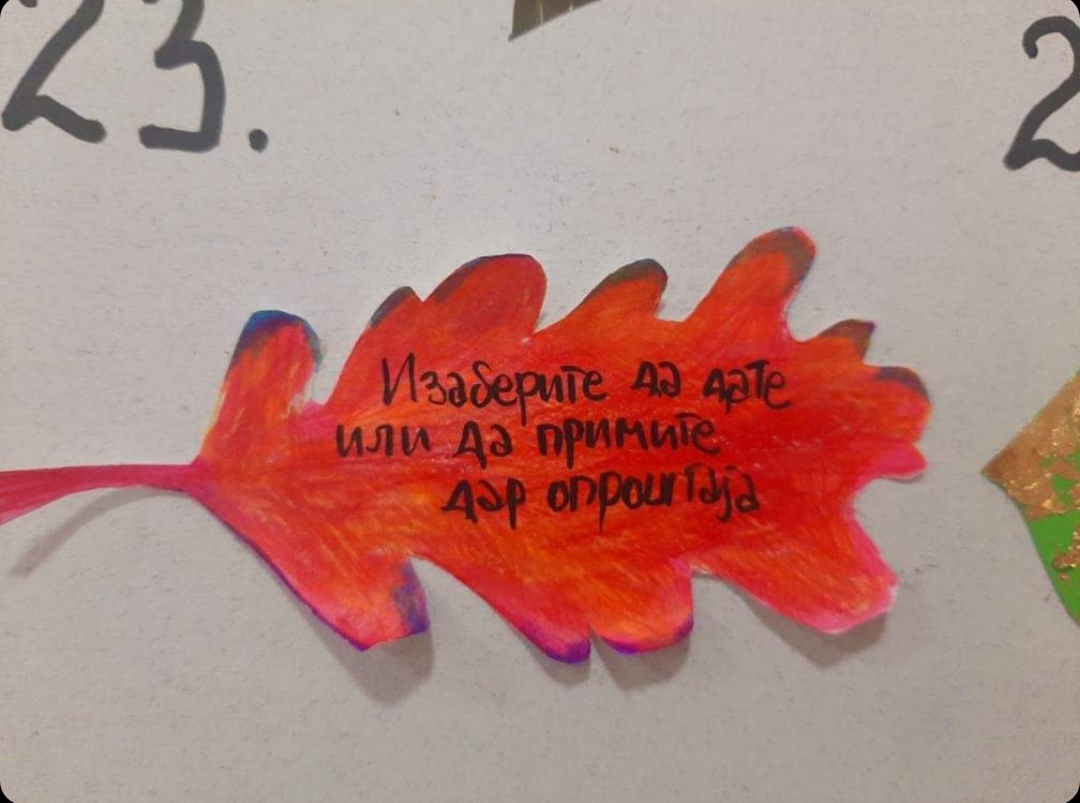 23.
2
Изаберите да дате
или да примите
дар опроштаја